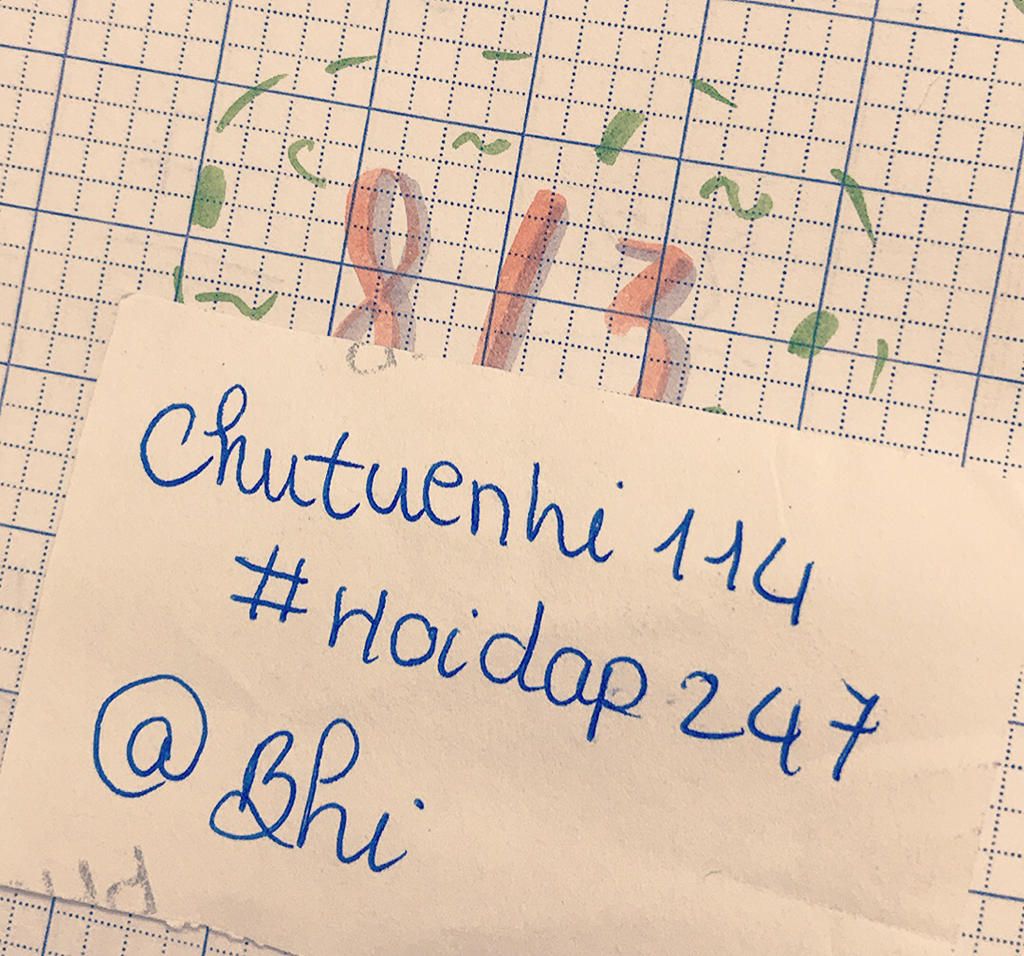 8/3
Chutuenhi 114
#Hoidap 247
@Bhi